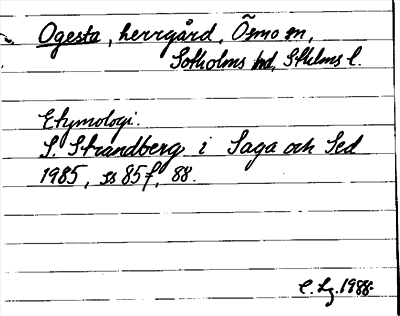 Ogesta, herrgård, Ösmo sn,
Sotholms hd, Sthlms l.
Etymologi.
S. Strandberg i Saga och Sed
1985, ss 85 f, 88.
1988.